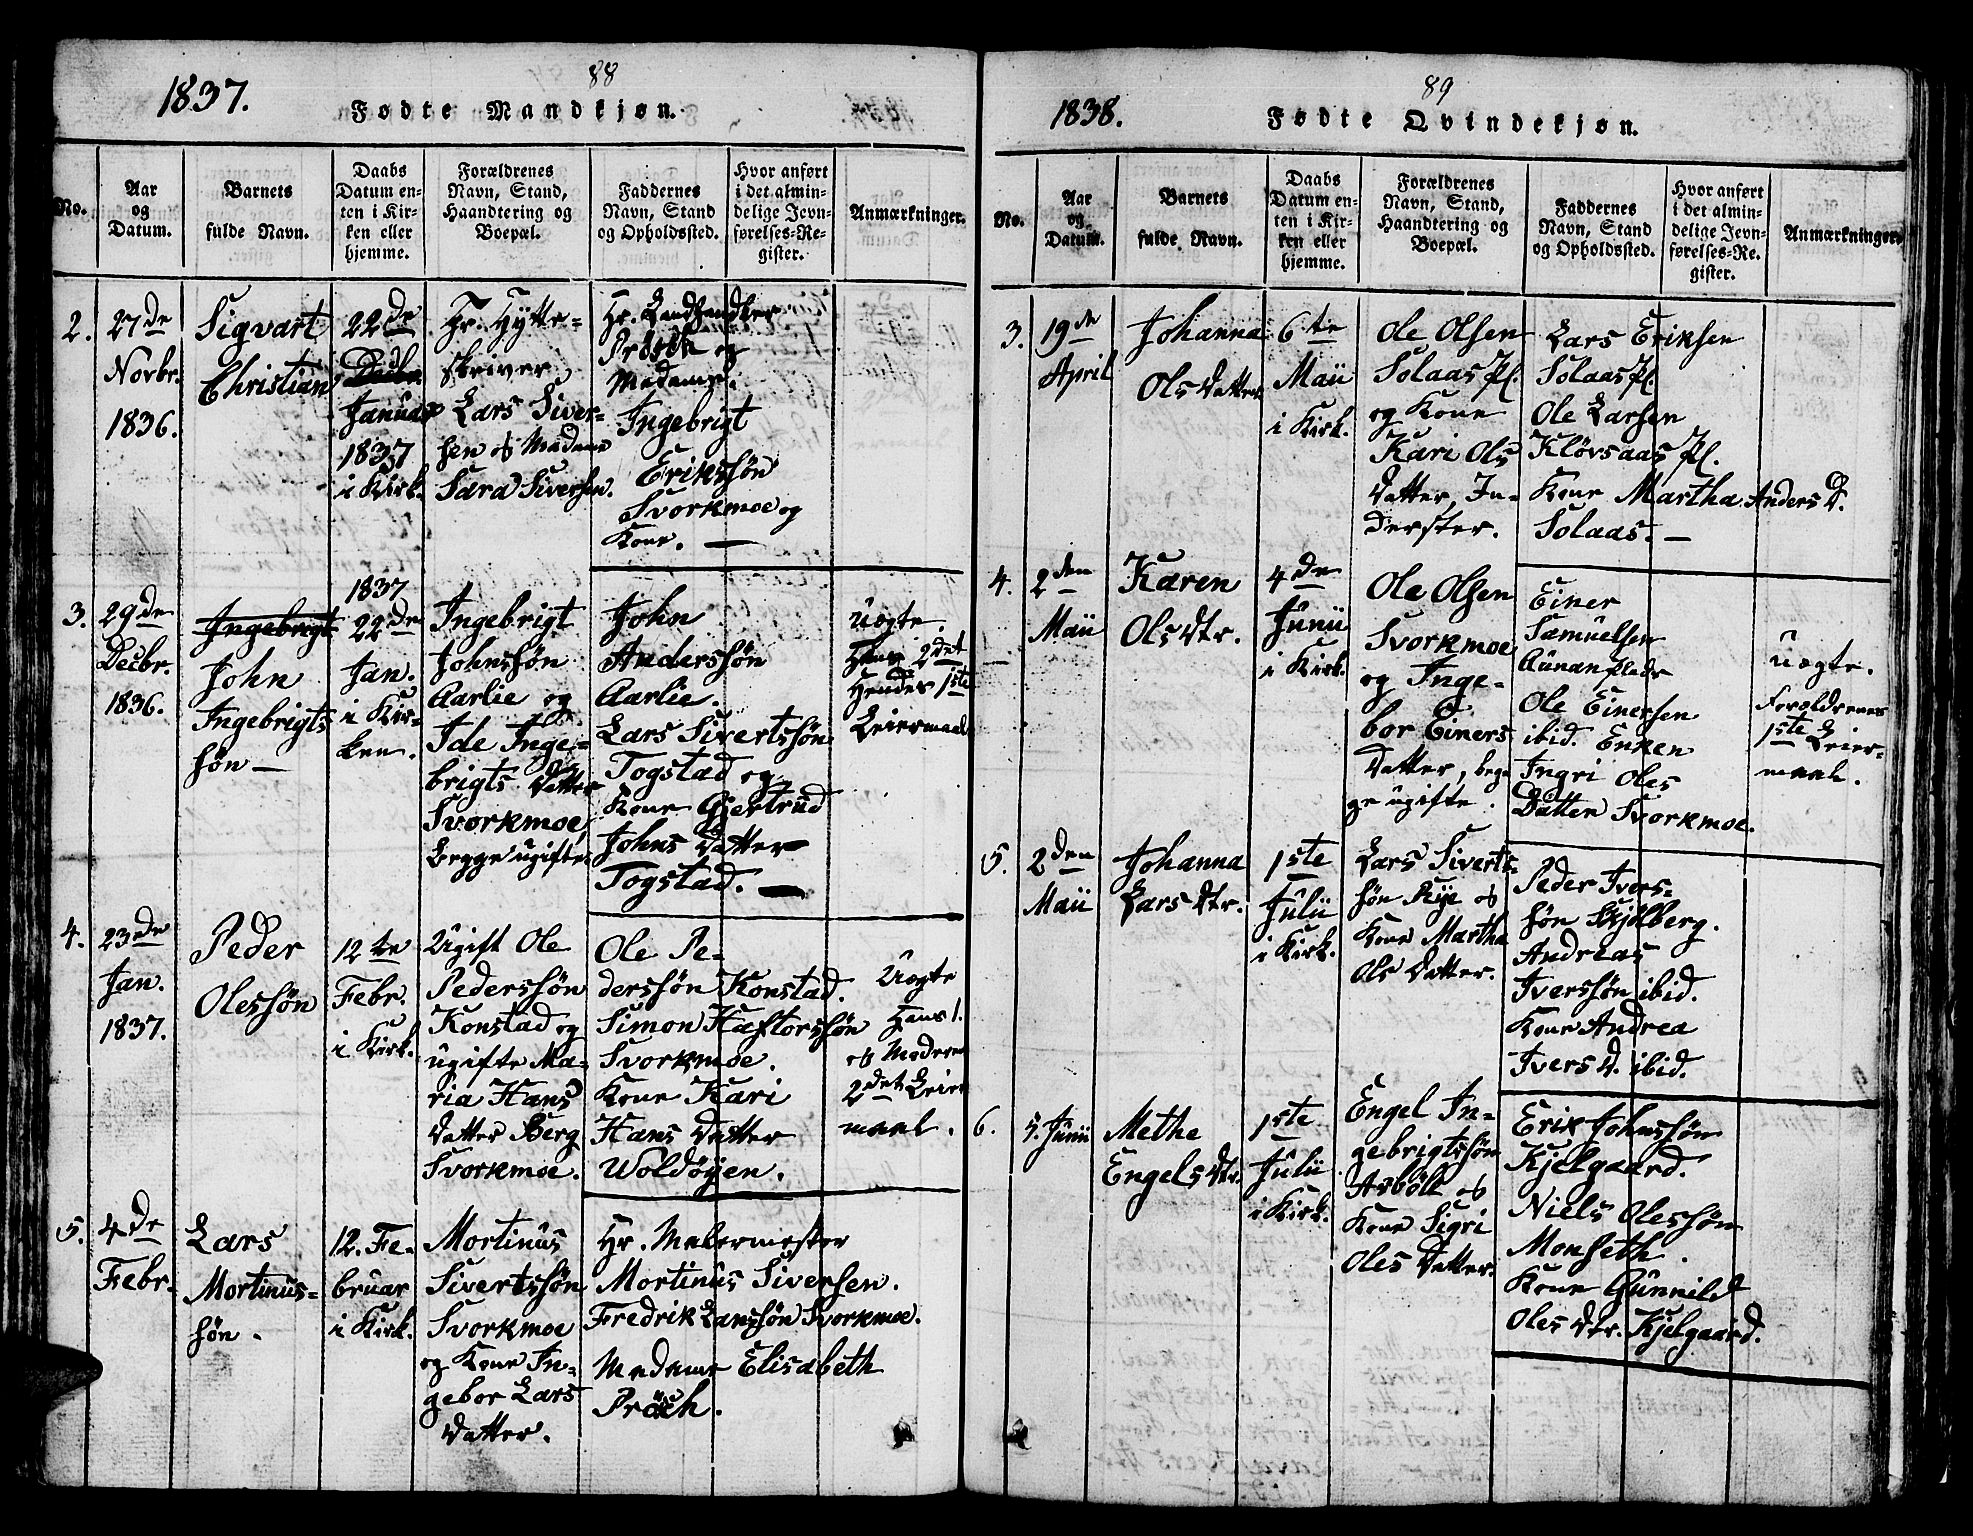 1837.
88
Fødte Mandkjøn.
No.
Aar
og
Datum.
Barnets
fulde Navn.
Daabs
Datum en-
ten i Kir-
ken eller
hjemme.
Forældrenes
Navn, Stand,
Haandtering og
Boepæl.
Faddernes
Navn, Stand
og Opholdssted.
Hvor anført
i det almin-
delige Jevn-
førelses-Re-
gister.
Anmærkninger.
2.
27de
Novbr.
1836.
Sigvart
Christian
22de
Januar
1837
i Kirk.
Hr. Hytte-
skriver
Lars Siver-
sen og Madame
Sara Siversen.
Hr. Landhandler
Prösch og
Madame.
Ingebrigt
Erikssøn
Svorkmoe og
Kone. —
3.
29de
Decbr.
1836.
Ingebrigt
John
Ingebrigts
søn —
1837
22de
Jan.
i Kir-
ken.
Ingebrigt
Johnssøn
Aarlie og
Ide Inge-
brigts Datter
Svorkmoe,
begge ugifte.
John
Anderssøn
Aarlie.
Lars Sivertssøn
Togstad og
Kone Gjertrud
Johns Datter
Togstad. —
Uægte.
Hans 2det
Hendes 1ste
Leiermaal
4.
23de
Jan.
1837.
Peder
Olessøn
12te
Febr.
i Kirk.
Ugift Ole
Pederssøn
Konstad og
ugifte Ma-
ria Hans
Datter Berg
Svorkmoe.
Ole Pe-
derssøn Konstad.
Simon Haftorssøn
Svorkmoe.
Kone Kari
Hans Datter
Woldøyen.
Uægte
Hans 1.
og Moderens
2det Leier
maal.
5.
4de
Febr.
Lars
Mortinus-
søn.
12. Fe-
bruar
i Kirk.
Mortinus
Sivertssøn
Svorkmoe
og Kone In-
gebor Lars
Datter.
Hr. Malermester
Mortinus Siversen.
Fredrik Larssøn Svorkmoe.
Madame Elisabeth
Prösch.
1838.
89
Fødte Qvindekjøn.
No.
Aar
og
Datum.
Barnets
fulde Navn.
Daabs
Datum en-
ten i Kir-
ken eller
hjemme.
Forældrenes
Navn, Stand,
Haandtering og
Boepæl.
Faddernes
Navn, Stand
og Opholdssted.
Hvor anført
i det almin-
delige Jevn-
førelses-Re-
gister.
Anmærkninger.
3.
19de
April
Johanna
Ols Datter
6te
Maii
i Kirk.
Ole Olsen
Solaas Pl.
og Kone
Kari Ols
Datter, In-
derster.
Lars Eriksen
Solaas Pl.
Ole Larsen
Kløvsaas Pl.
Kone Martha Anders D.
Solaas. —
4.
2den
Maii
Karen
Ols Dtr.
4de
Junii
i Kirk.
Ole Olsen
Svorkmoe
og Inge-
bor Einers
Datter, beg-
ge ugifte.
Einer
Samuelsen
Aunan Plads
Ole Einersen
ibid. Enken
Ingri Oles
Datter Svorkmoe.
Uægte.
Forældrenes
1ste Leier-
maal.
5.
2den
Maii
Johanna
Lars Dtr.
1ste
Julii
i Kirk.
Lars Siverts-
søn Rye og
Kone Martha
Ols Datter.
Peder Ivers-
søn Skjølberg.
Andreas
Iverssøn ibid.
Kone Andrea
Ivers D. ibid.
6.
5. Junii
Methe
Engels Dtr.
1ste
Julii
i Kirk.
Engel In-
gebrigtssøn
Asbölt og
Kone Sigri
Oles Datter.
Erik Johnssøn
Kjelgaard.
Niels Olessøn
Monseth.
Kone Gunnild
Oles Dtr. Kjelgaard.